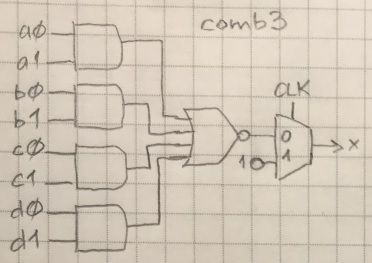 comb3
a0
a1
b0
b1
c0
c1
d0
d1
CLK
0
1
1
x